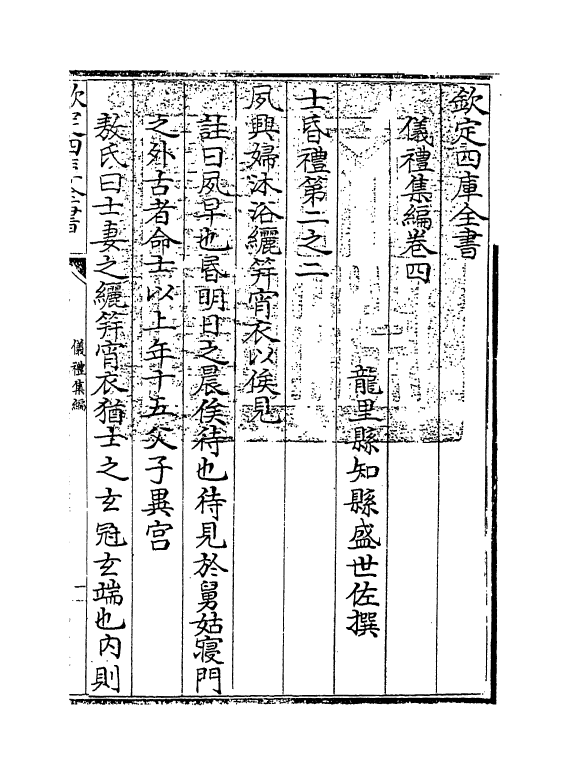 欽定四庫全書
儀禮集編卷四
龍里縣知縣盛世佐撰
士昏禮第二之二
夙興婦沐浴纚笄宵衣以俟見
註曰夙早也昏明日之晨俟待也待見於舅姑寢門
之外古者命士以上年十五父子異宫
敖氏曰士妻之纚笄宵衣猶士之玄冠玄端也内則
欽定四庫全書
儀禮集編
一